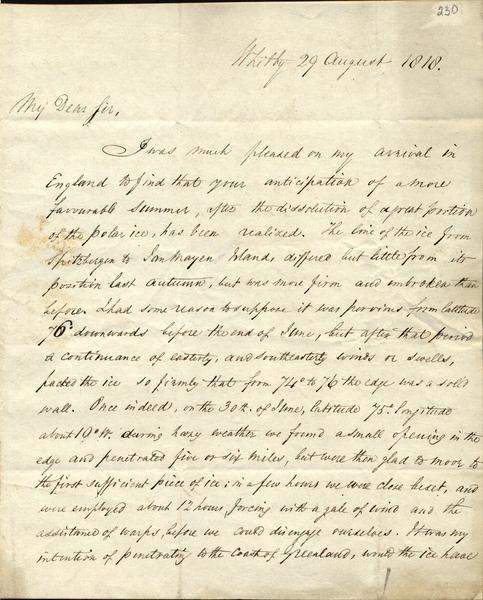 230
Whitby 29 August 1818.
My Dear Sir,
I was much pleased on my arrival in
England to find that your anticipation of a more
favourable summer, after the dissolution of a great portion
of the polar ice, has been realized. The line of the ice from
Spitzbergen to Jan Mayen Island, differed but little from its
position last autumn, but was more firm and unbroken than
before. I had some reason to suppose it was pervious from latitude
76° downwards before the end of June, but after that period
a continuance of easterly, and southeasterly winds or swells,
packed the ice so firmly that from 74° to 76 the edge was a solid
wall. Once indeed, on the 30th. of June, latitude 75°. longitude
about 10° W. during hazy weather we found a small opening in the
edge and penetrated five or six miles, but were then glad to moor to
the first sufficient piece of ice; in a few hours we were close beset, and
were employed about 12 hours, forcing with a gale of wind and the
assistance of warps, before we could disengage ourselves. It was my
intention of penetrating to the Coast of Greenland, would the ice have